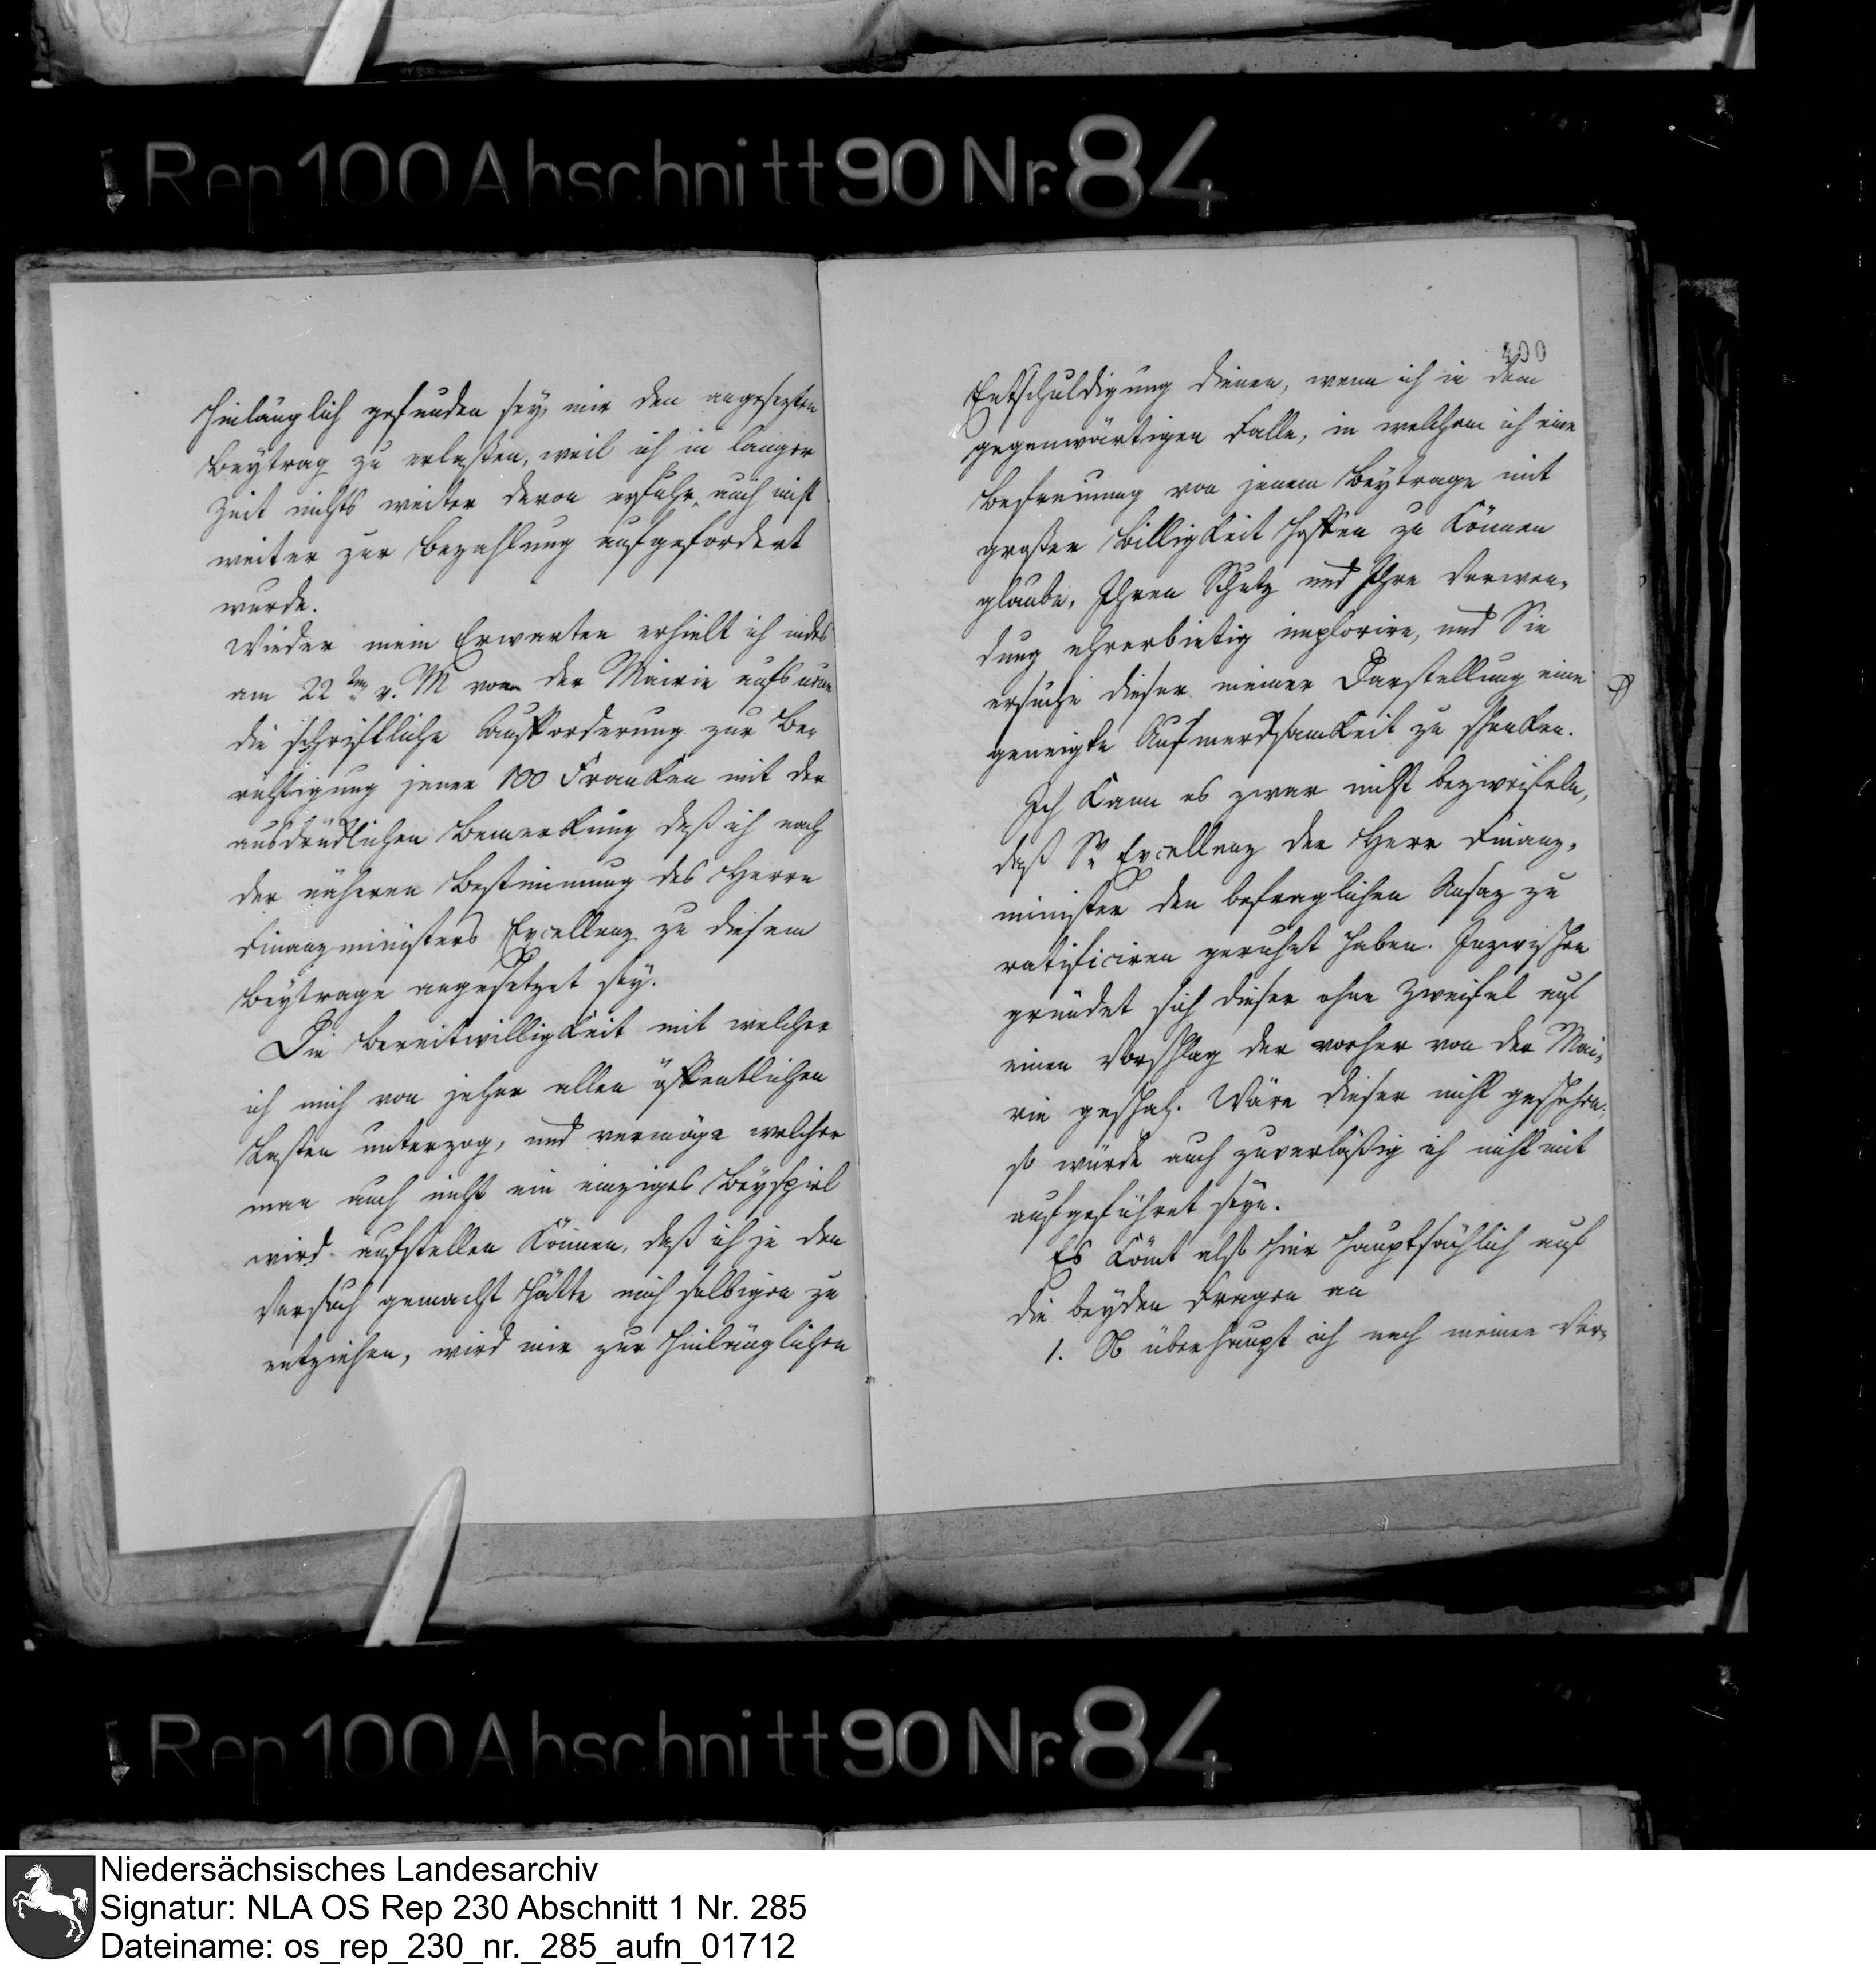 Rep 100 Abschnitt 90 Nr. 84
hinlänglich gefunden sey, mir den angesezten
Beytrag zu erlaßen, weil ich in langer
Zeit nichts weiter davon erfuhr, auch nicht
weiter zur Bezahlung aufgefordert
wurde.
Wieder mein Erwarten erhielt ich indes
am 22ten v. M von der Mairie aufs neue
die schriftliche Aufforderung zur Be-
richtigung jener 100 Franken mit der
ausdrücklichen Bemerkung daß ich nach
der näheren Bestimmung des Herrn
Finanzministers Excellenz zu diesem
Beytrage angesetzet sey.
Die Bereitwilligkeit mit welcher
ich mich von jeher allen öffentlichen
Lasten unterzog, und vermöge welcher
man auch nicht ein einziges Beyspiel
wird aufstellen können, daß ich je den
Versuch gemacht hätte mich selbigen zu
entziehen, wird mir zur hinlänglichen
400
Entschuldigung dienen, wenn ich in dem
gegenwärtigen Falle, in welchem ich eine
Befreiung von jenem Beytrage mit
großer Billigkeit hoffen zu können
glaube, Ihren Schutz und Ihre Verwen-
dung ehrerbietig implorire, und Sie
ersuche dieser meiner Darstellung eine
geneigte Aufmercksamkeit zu schenken.
Ich kann es zwar nicht bezweifeln,
daß Sr Excellenz der Herr Finanz-
minister den befraglichen Ansaz zu
ratificiren geruhet haben. Inzwischen
gründet sich dieser ohne Zweifel auf
einen Vorschlag der vorher von der Mai-
rie geschah. Wäre dieser nicht geschehen,
so würde auch zuverläßig ich nicht mit
aufgeführet seyn.
Es kömt also hier hauptsächlich auf
die beyden Fragen an
1. Ob überhaupt ich nach meinen Ver-
Rep 100 Abschnitt 90 Nr. 84
Niedersächsisches Landesarchiv
Signatur: NLA OS Rep 230 Abschnitt 1 Nr. 285
Dateiname: os_rep_230_nr._285_aufn_01712